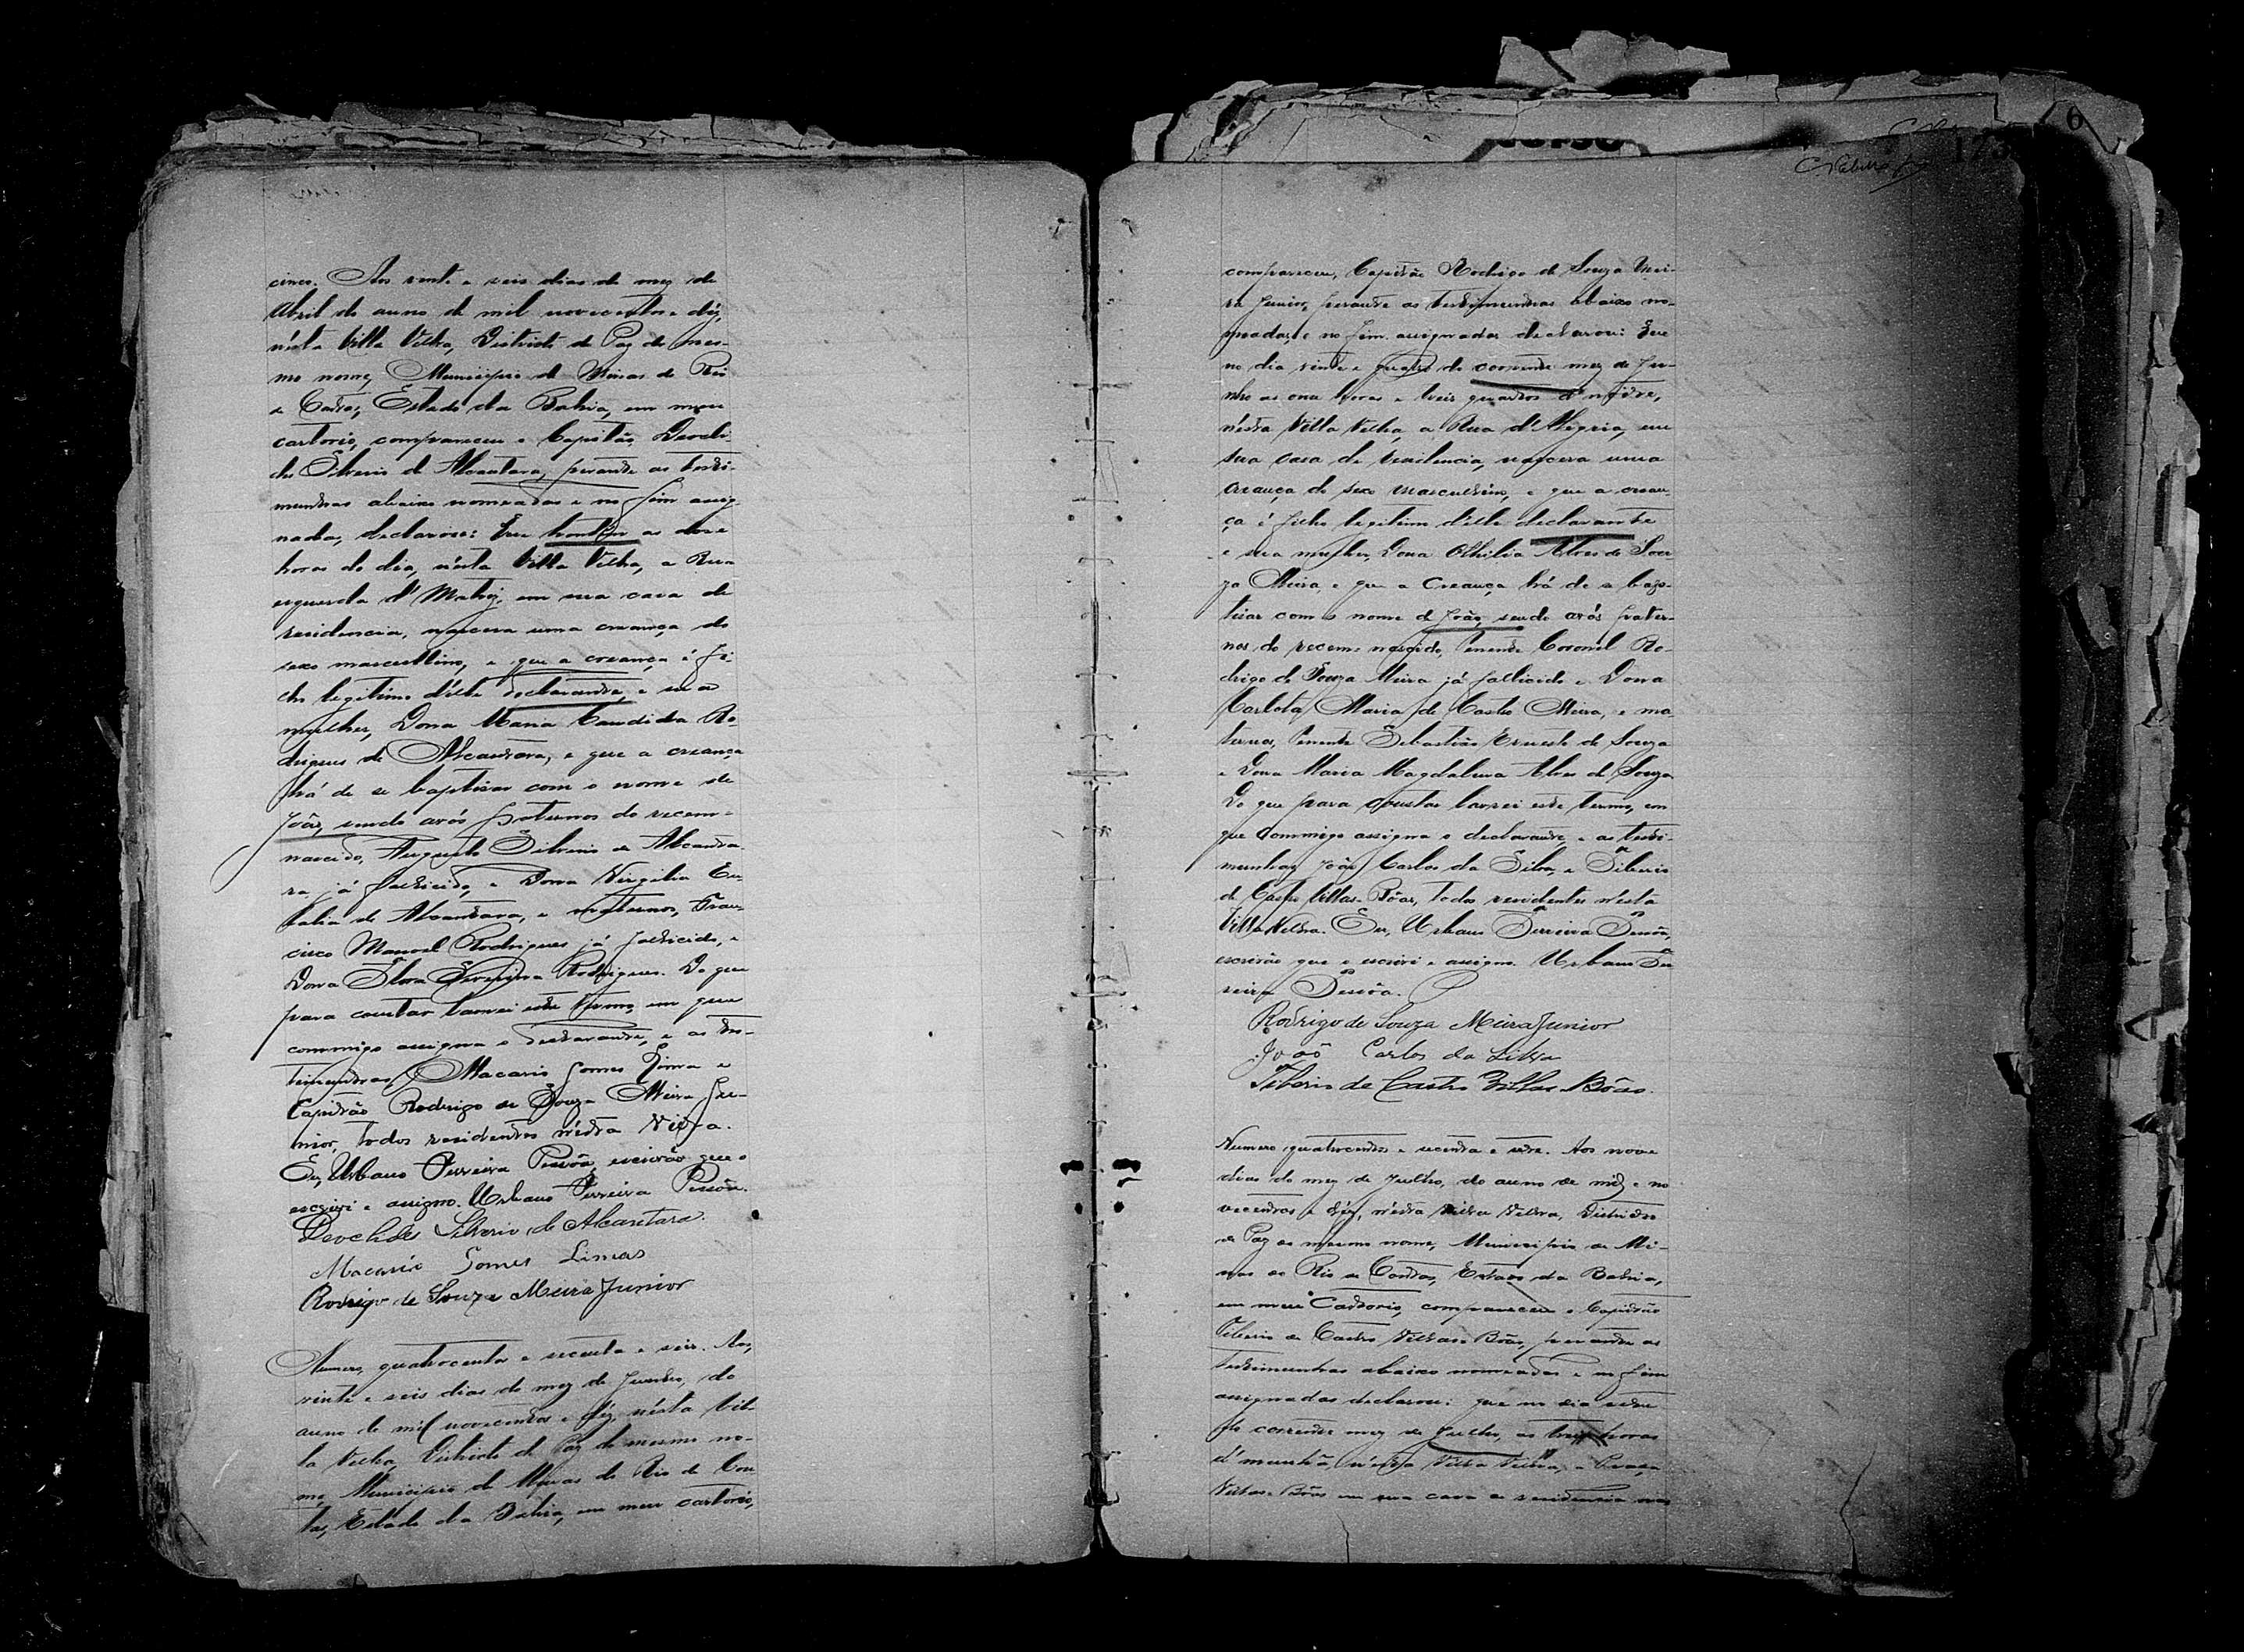 cinco. Aos vinte e seis dias do mez de
Abril do anno de mil novecentos e déz,
n'ésta Villa Velha, Districto de Paz do mes-
mo nome, Municipio de Minas do Rio
de Contas, Estado da Bahia, em meu
cartorio, compareceu o Capitão Deocli-
des Silverio de Alcantara, perante as testi-
munhas abaixo nomeadas e no fim assig
nadas, declarou: Que hontem as doze
horas do dia, n'ésta Villa Velha, a Rua
esquerda d'Matriz, em sua casa de
residencia, nascera uma creança do
sexo mascullino, e que a creança é fi-
lho legitimo d'élle declarante, e sua
mulher, Dona Maria Candida Ro-
drigues de Alcantara, e que a creança
há de se baptisar com o nome de
João, sendo avós paternos do recem-
nascido, Augusto Silverio de Alcanta-
ra, já fallicido, e Dona Virgilia Eu-
lalia de Alcantara, e maternos, Fran-
cisco Manoel Rodrigues já fallicido, e
Dona Flora Severina Rodrigues. Do que
para constar lavrei este termo, em que
commigo assigna o declarante, e as tes-
timunhas, Macario Gomes Lima e
Capitão Rodrigo de Souza Meira Ju-
nior, todos residentes n'ésta Villa.
Eu, Urbano Ferreira Pessôa, escrivão que o
escrivi e assigno. Urbano Ferreira Pessôa.
Deoclides Silverio de Alcantara.
Macario Gomes Limas
Rodrigo de Souza Meira Junior
Numero, quatrocentos e secenta e seis. Aos,
vinte e seis dias do mez de Junho, do
anno de mil novecentos e déz, n'ésta Vil-
la Velha, Districto de Paz do mesmo no-
me, Municipio de Minas do Rio de Con
tas, Estado da Bahia, em meu cartorio,
173
6
compareceu, Capitão Rodrigo de Souza Mei-
ra Junior, perante as testimunhas abaixo no-
meadas, e no fim assignadas declarou: Que
no dia vinte e quatro do corrente mez de Ju-
nho as onze horas e treis quartos d'noite,
n'ésta Villa Velha, a Rua d'Alegria, em
sua casa de residencia, nascera uma
creança do sexo masculino, e que a crean-
ça é filho legitimo d'élle declarante
e sua mulher, Dona Othilia Alves de Sou
za Meira, e que a creança há de se bap-
tisar com o nome de João, sendo avós pater-
nos do recem-nascido, Tenente Coronel Ro-
drigo de Souza Meira já fallicido e Dona
Carlota Maria de Castro Meira, e ma-
ternos, Tenente Sebastião Ernesto de Souza
e Dona Maria Magdalena Alves de Souza
Do que para constar lavrei este termo, em
que commigo assigna o declarante, e as testi-
munhas João Carlos da Silva, e Tiberio
de Castro Villas-Bôas, todos residentes n'ésta
Villa Velha. Eu, Urbano Ferreira Pessôa,
escrivão que o escrivi e assigno. Urbano Fer
reira Pessôa.
Rodrigo de Souza Meira Junior
João Carlos da Silva
Tiberio de Castro Villas-Bôas.
Numero quatrocentos e secenta e sete. Aos nove
dias do mez de Julho, do anno de mil e no
vecentos e déz, n'ésta Villa Velha, Districto
de Paz do mesmo nome, Municipio de Mi-
nas do Rio de Contas, Estado da Bahia,
em meu Cartorio, compareceu o Capitão
Tiberio de Castro Villas-Bôas, perante as
testimunhas abaixo nomeadas e no fim
assignadas declarou: que no dia sete
do corrente mez de Julho, as horas
d'manhã, n'ésta Villa Velha, a Praça
Villas-Bôas em sua casa de residencia nas